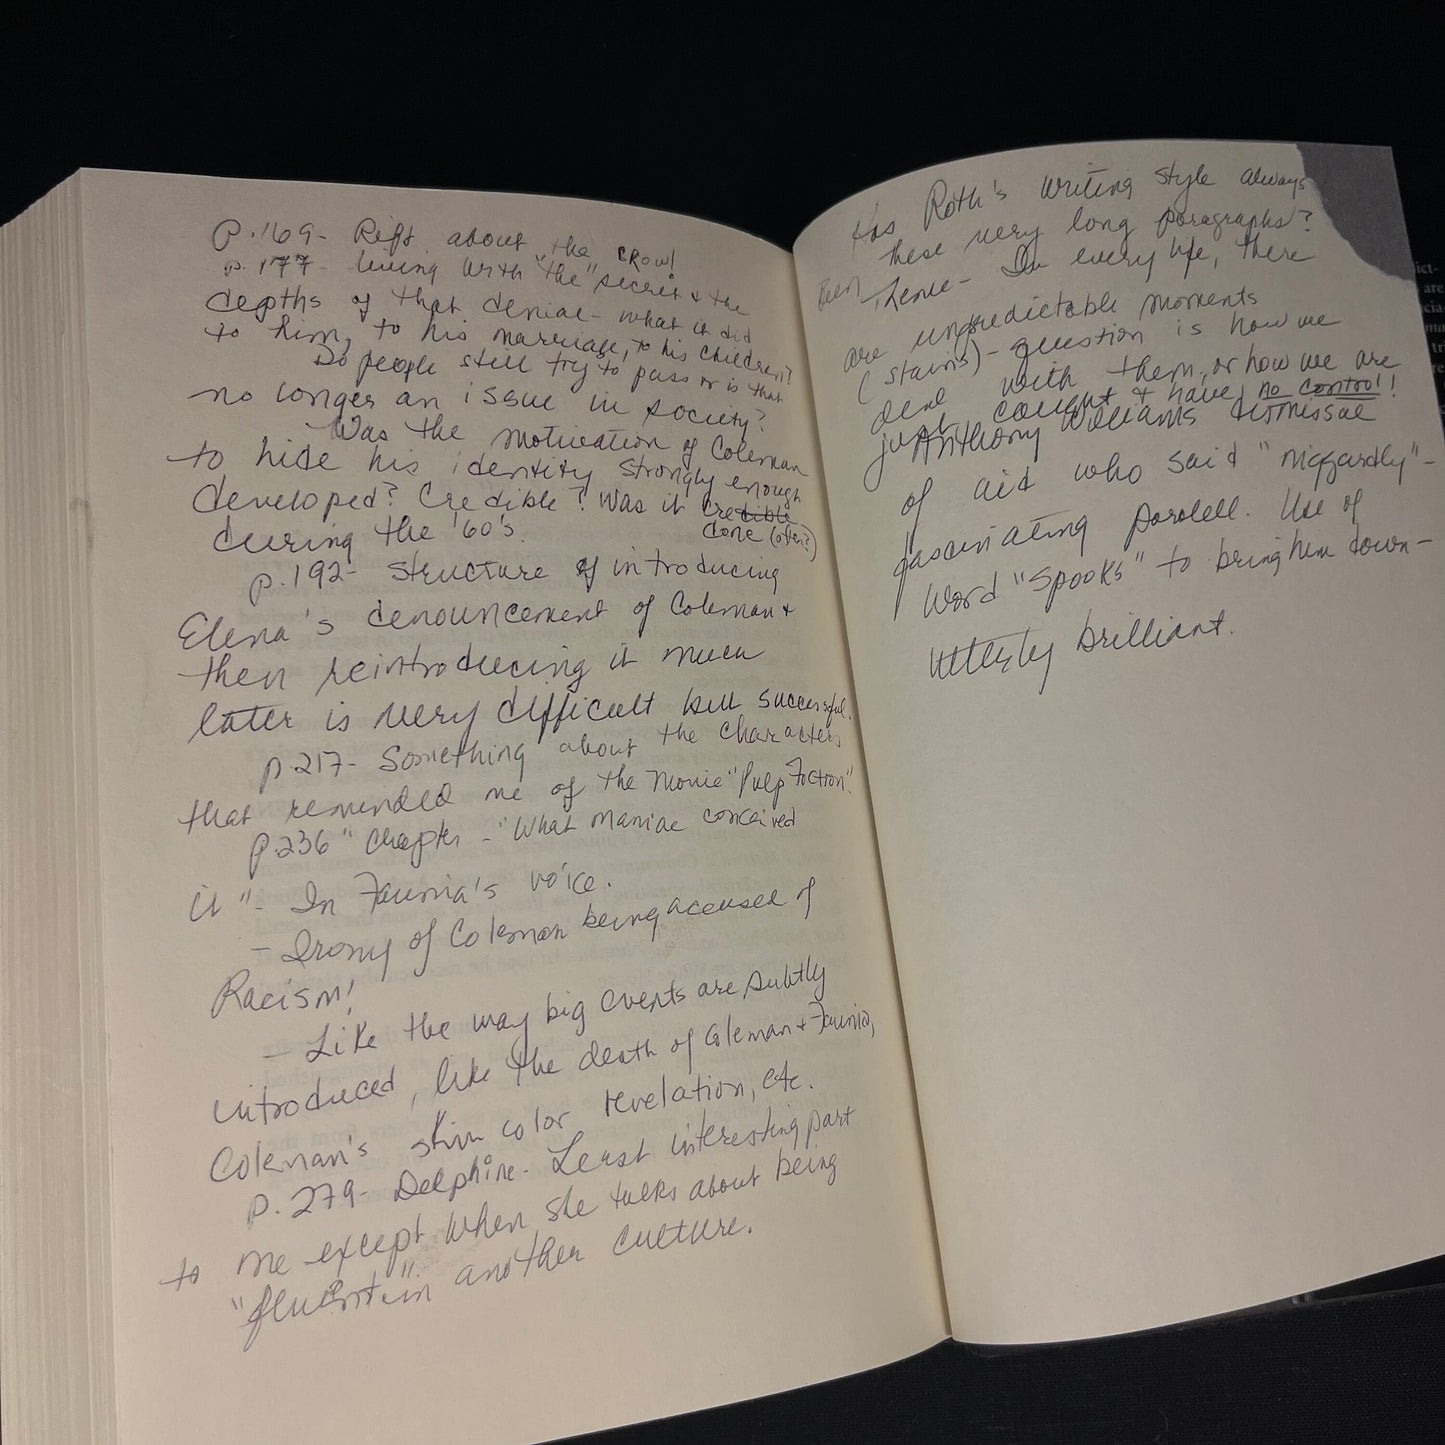 P. 169- Riff about "the CROW!
P. 177- living with "the" secret & the
depths of that denial- what it did
to him, to his marriage, to his children?
Do people still try to pass or is that
no longer an issue in society?
Was the motivation of Coleman
to hide his identity strongly enough
developed? Credible? Was it credible
done (often?)
during the '60's.
p. 192- structure of introducing
Elena's denouncement of Coleman &
then reintroducing it much
later is very difficult but successful.
p. 217- Something about the characters
that reminded me of the movie "Pulp Fiction".
P. 236 "Chapter - "What maniac conceived
it"- In Faunia's voice.
- Irony of Coleman being accused of
Racism!
- Like the way big events are subtly
introduced, like the death of Coleman & Faunia,
Coleman's skin color revelation, etc.
p. 279- Delphine- Least interesting part
to me except when she talks about being
"fluent" in another culture.
Has Roth's writing style always
Been
these very long paragraphs?
Theme- In every life, there
are unpredictable moments
(stains)- question is how we
deal with them, or how we are
just caught & have no control!
Anthony Williams dismissal
of aid who said "niggardly"-
fascinating parallel. Use of
Word "Spooks" to bring him down-
utterly brilliant.
ict-
are
cia
tri